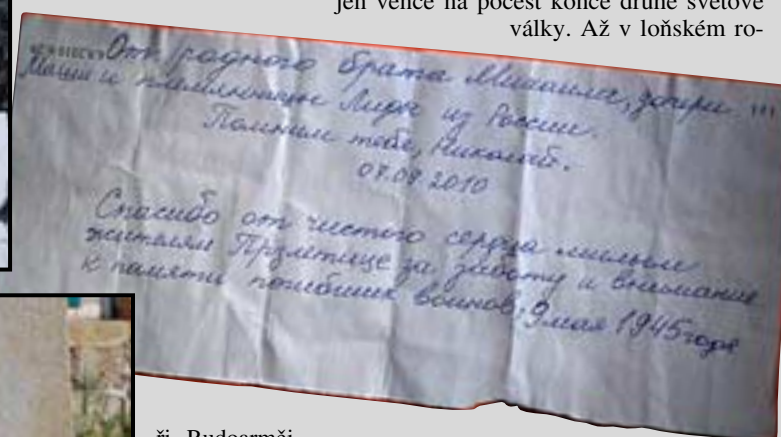 jen věnce na počest konce druhé světové
války. Až v loňském ro-
От родного брата Михаила, дочери
Маши и племянницы Лиды из России.
Помним тебя, Николай.
07.09.2010
Спасибо от чистого сердца милым
жителям Прзлетице за заботу и внимание
к памяти погибших воинов, 9 мая 1945 года
ři. Rudoarměj-